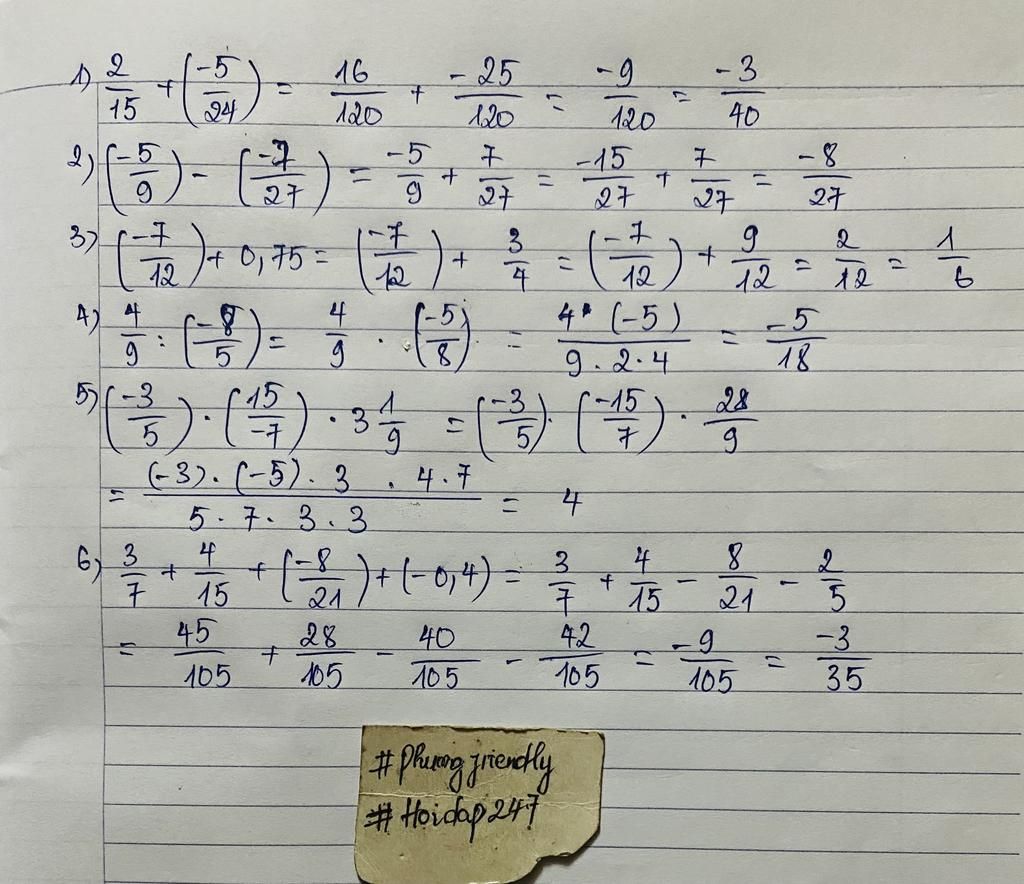 1) 2/15 + (-5/24) = 16/120 + -25/120 = -9/120 = -3/40
2) (-5/9) - (-7/27) = -5/9 + 7/27 = -15/27 + 7/27 = -8/27
3) (-7/12) + 0,75 = (-7/12) + 3/4 = (-7/12) + 9/12 = 2/12 = 1/6
4) 4/9 : (-8/5) = 4/9 . (-5/8) = 4 . (-5)/9 . 2 . 4 = -5/18
5) (-3/5) . (15/-7) . 3 1/9 = (-3/5) . (-15/7) . 28/9
= (-3) . (-5) . 3 . 4 . 7/5 . 7 . 3 . 3 = 4
6) 3/7 + 4/15 + (-8/21) + (-0,4) = 3/7 + 4/15 - 8/21 - 2/5
= 45/105 + 28/105 - 40/105 - 42/105 = -9/105 = -3/35
# Phuong friendly
# Hoidap247